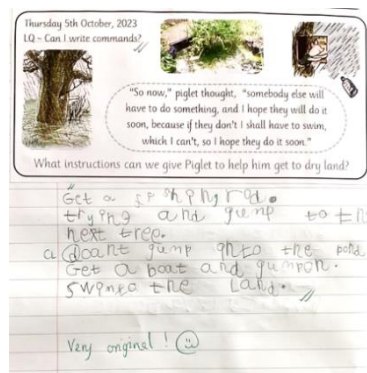 Thursday 5th October, 2023
LQ - Can I write commands?
"So now," piglet thought, "somebody else will
have to do something, and I hope they will do it
soon, because if they don't I shall have to swim,
which I can't, so I hope they do it soon."
What instructions can we give Piglet to help him get to dry land?
Get a
trying and gump to th
next tree.
CL cant gump into the pond
Get a boat and gumpon.
swinto the Land.
Very original !